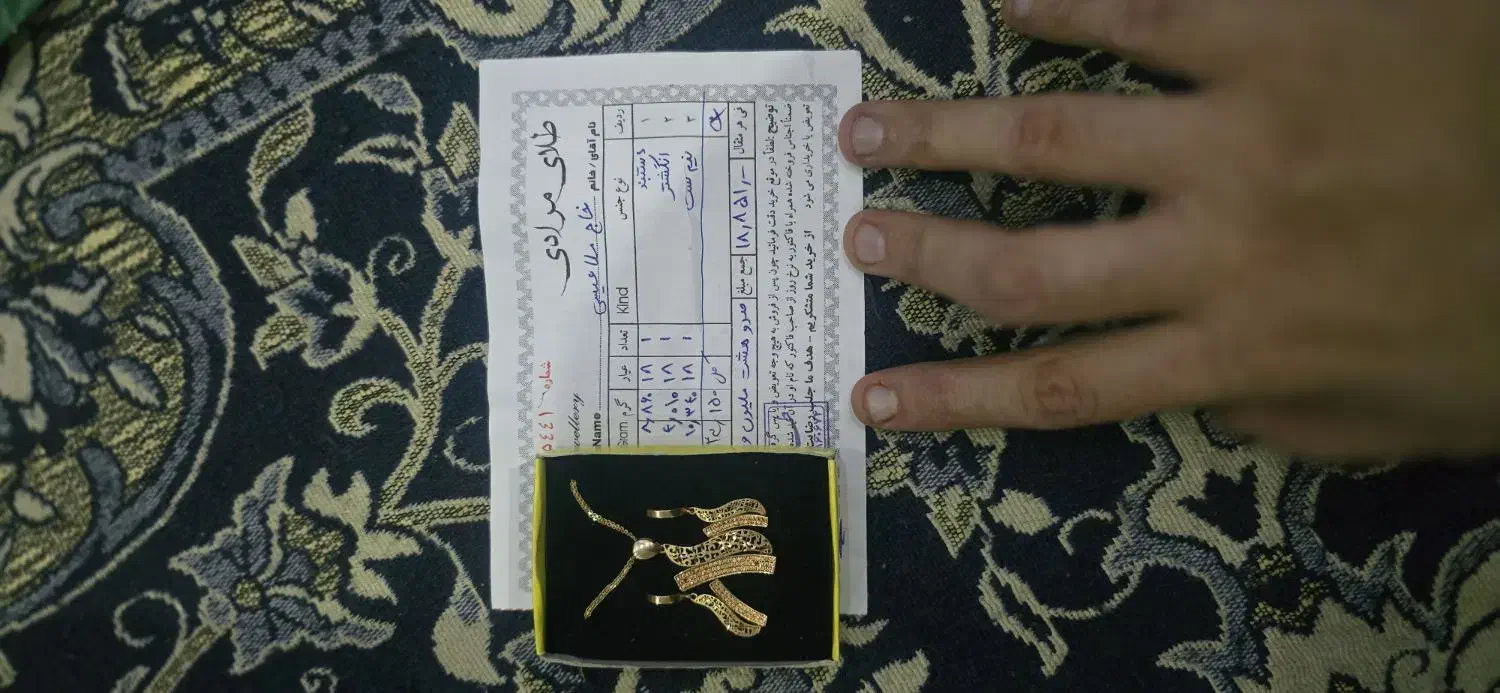 طلای مرادی
شماره ۵۴۴۱
wellery
نام آقای / خانم
Name
ردیف نوع جنس Kind تعداد عیار گرم Gram
۱ دستبند ۱ ۱۸
۲ انگشتر ۱ ۱۸ ۴٫۰۱۵
۳ نیم ست ۱ ۱۸ ۱۰٫۳۴۰
فی هر مثقال ۱۸٫۸۵۱٫- جمع مبلغ صد و هشت ملیون و
توضیح: لطفاً در موقع خرید دقت فرمائید چون پس از فروش به هیچ وجه تعویض و یا پس
ضمناً اجناس فروخته شده همراه با فاکتور به نرخ روز از صاحب فاکتور که نام او در
تعویض یا خریداری می شود از خرید شما متشکریم - هدف ما جلب رضایت